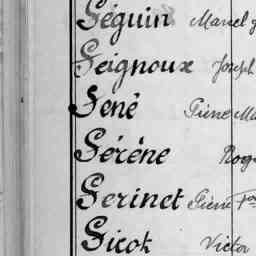 Séguin Marcel
Seignoux Joseph
Sené Pierre
Sérène
Serinet Pierre
Sicot Victor